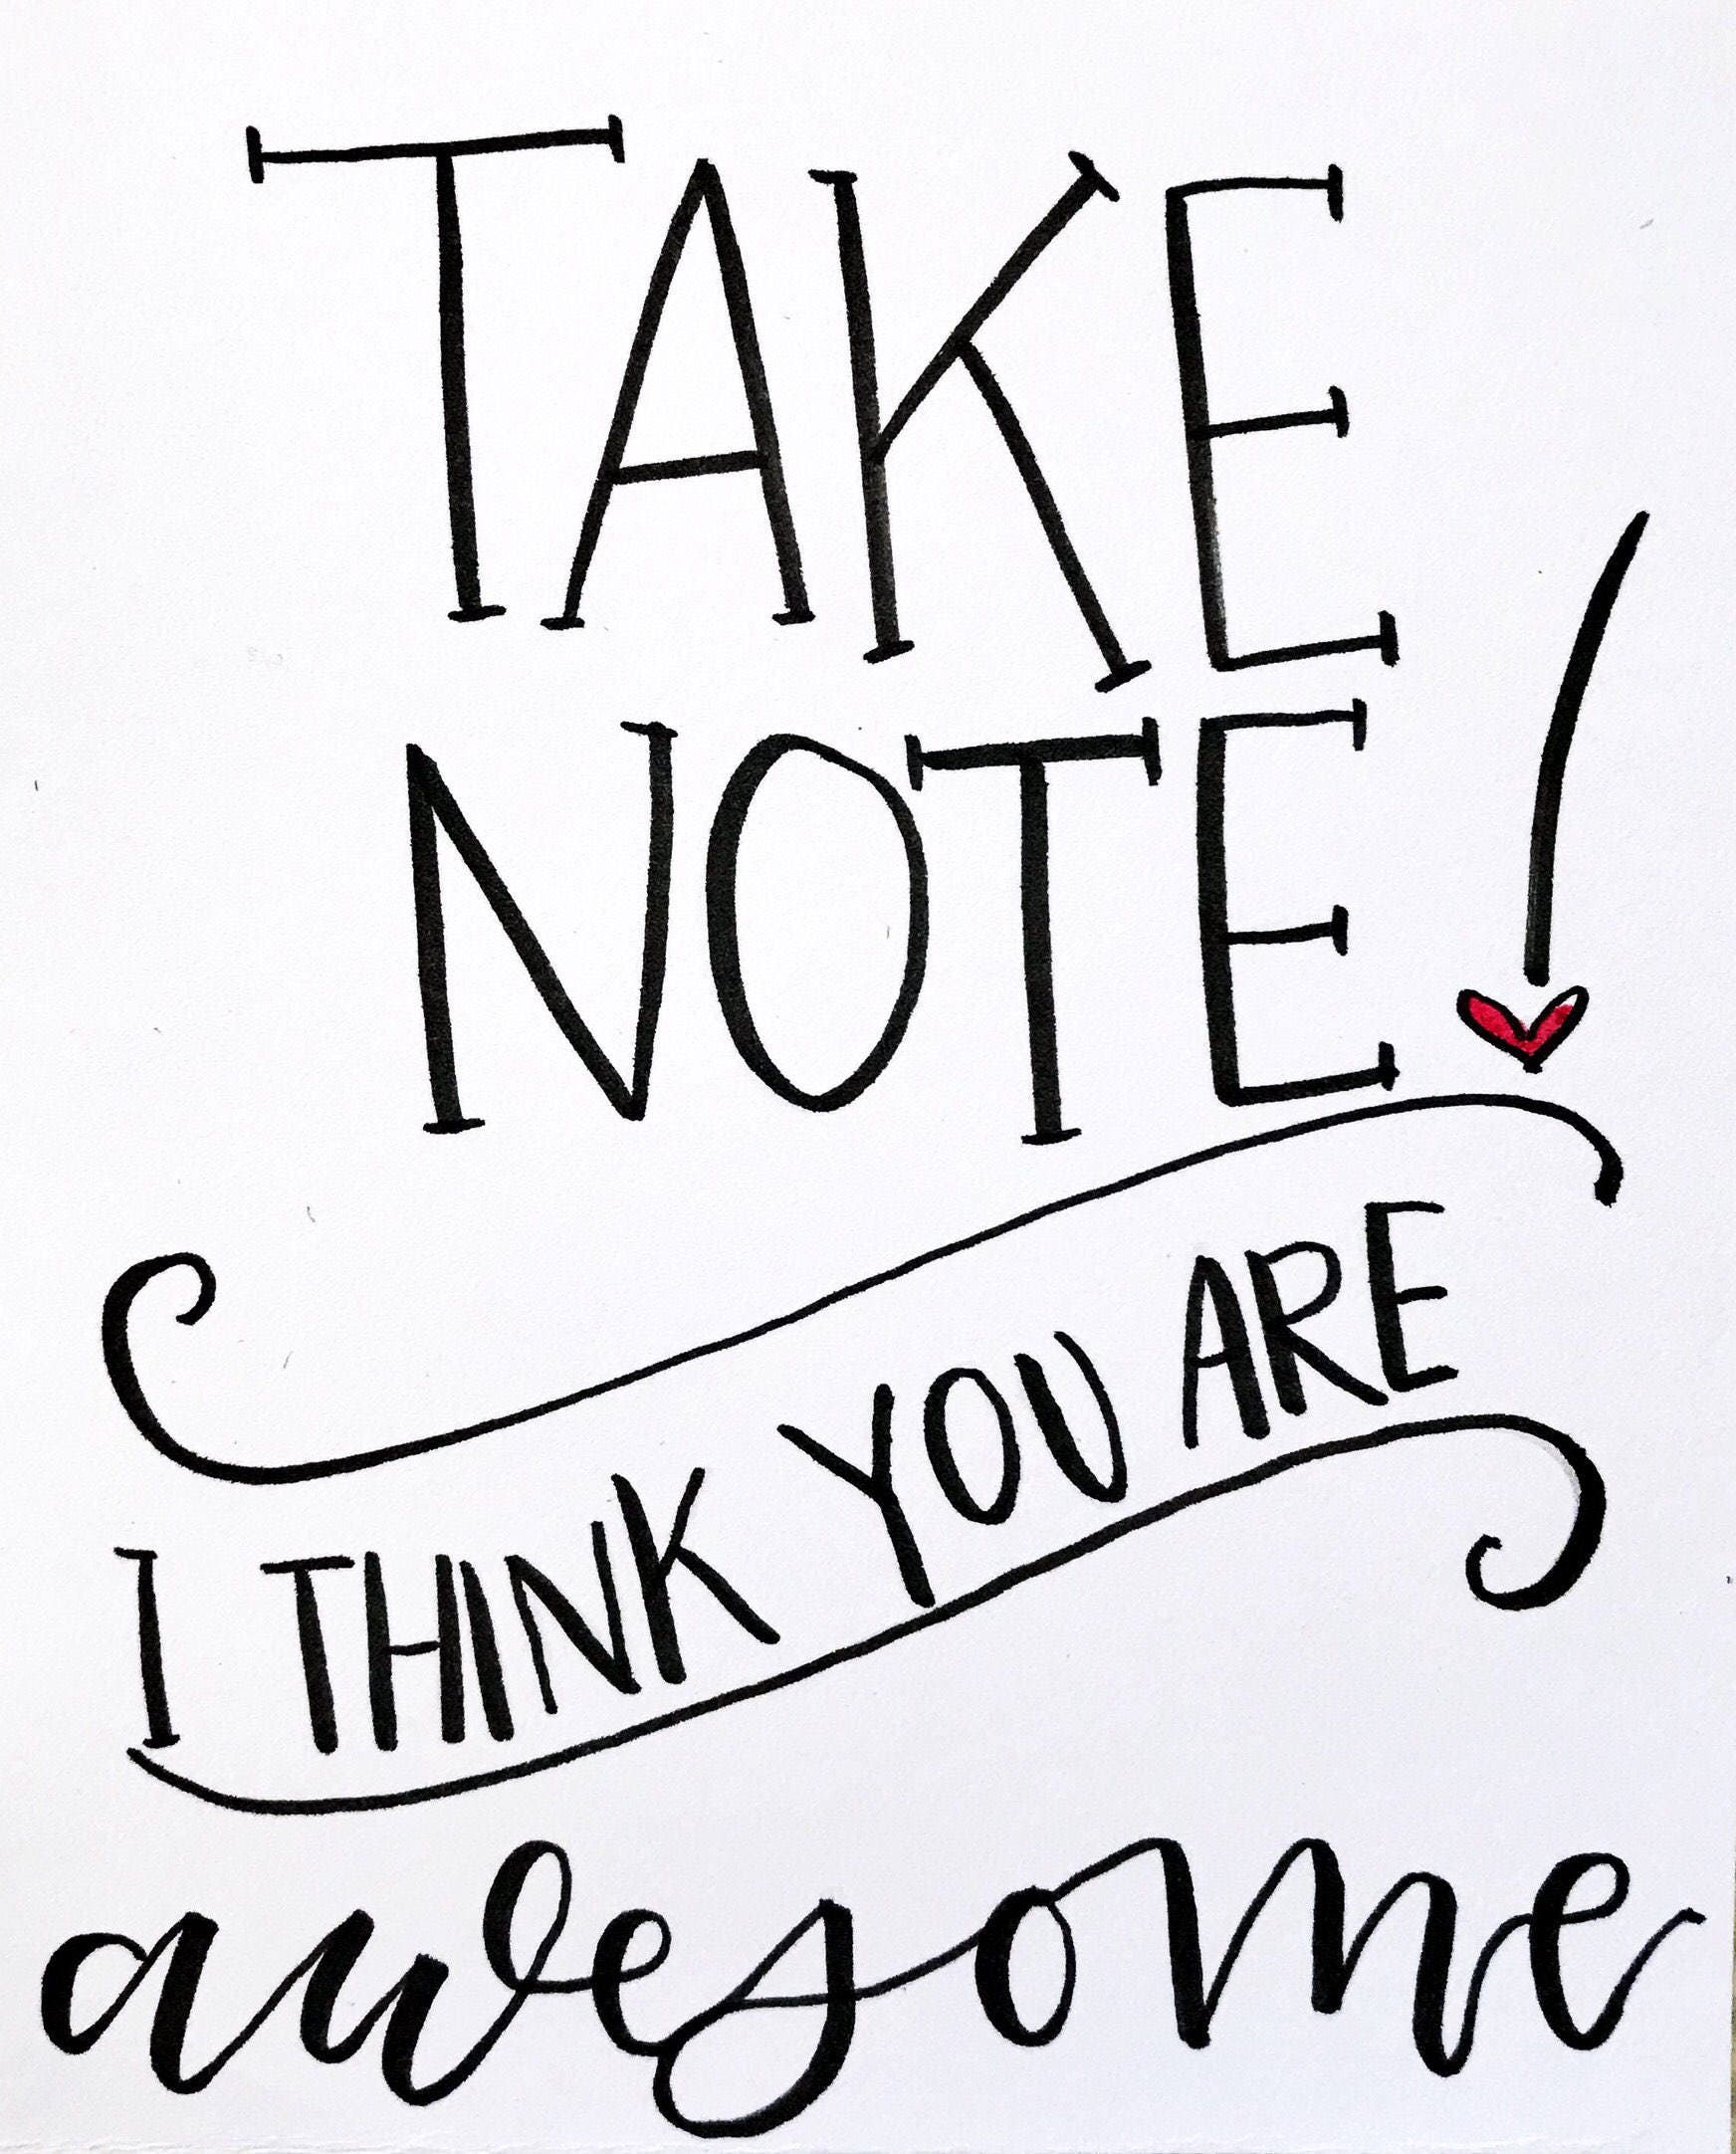 TAKE
NOTE!
I THINK YOU ARE
awesome